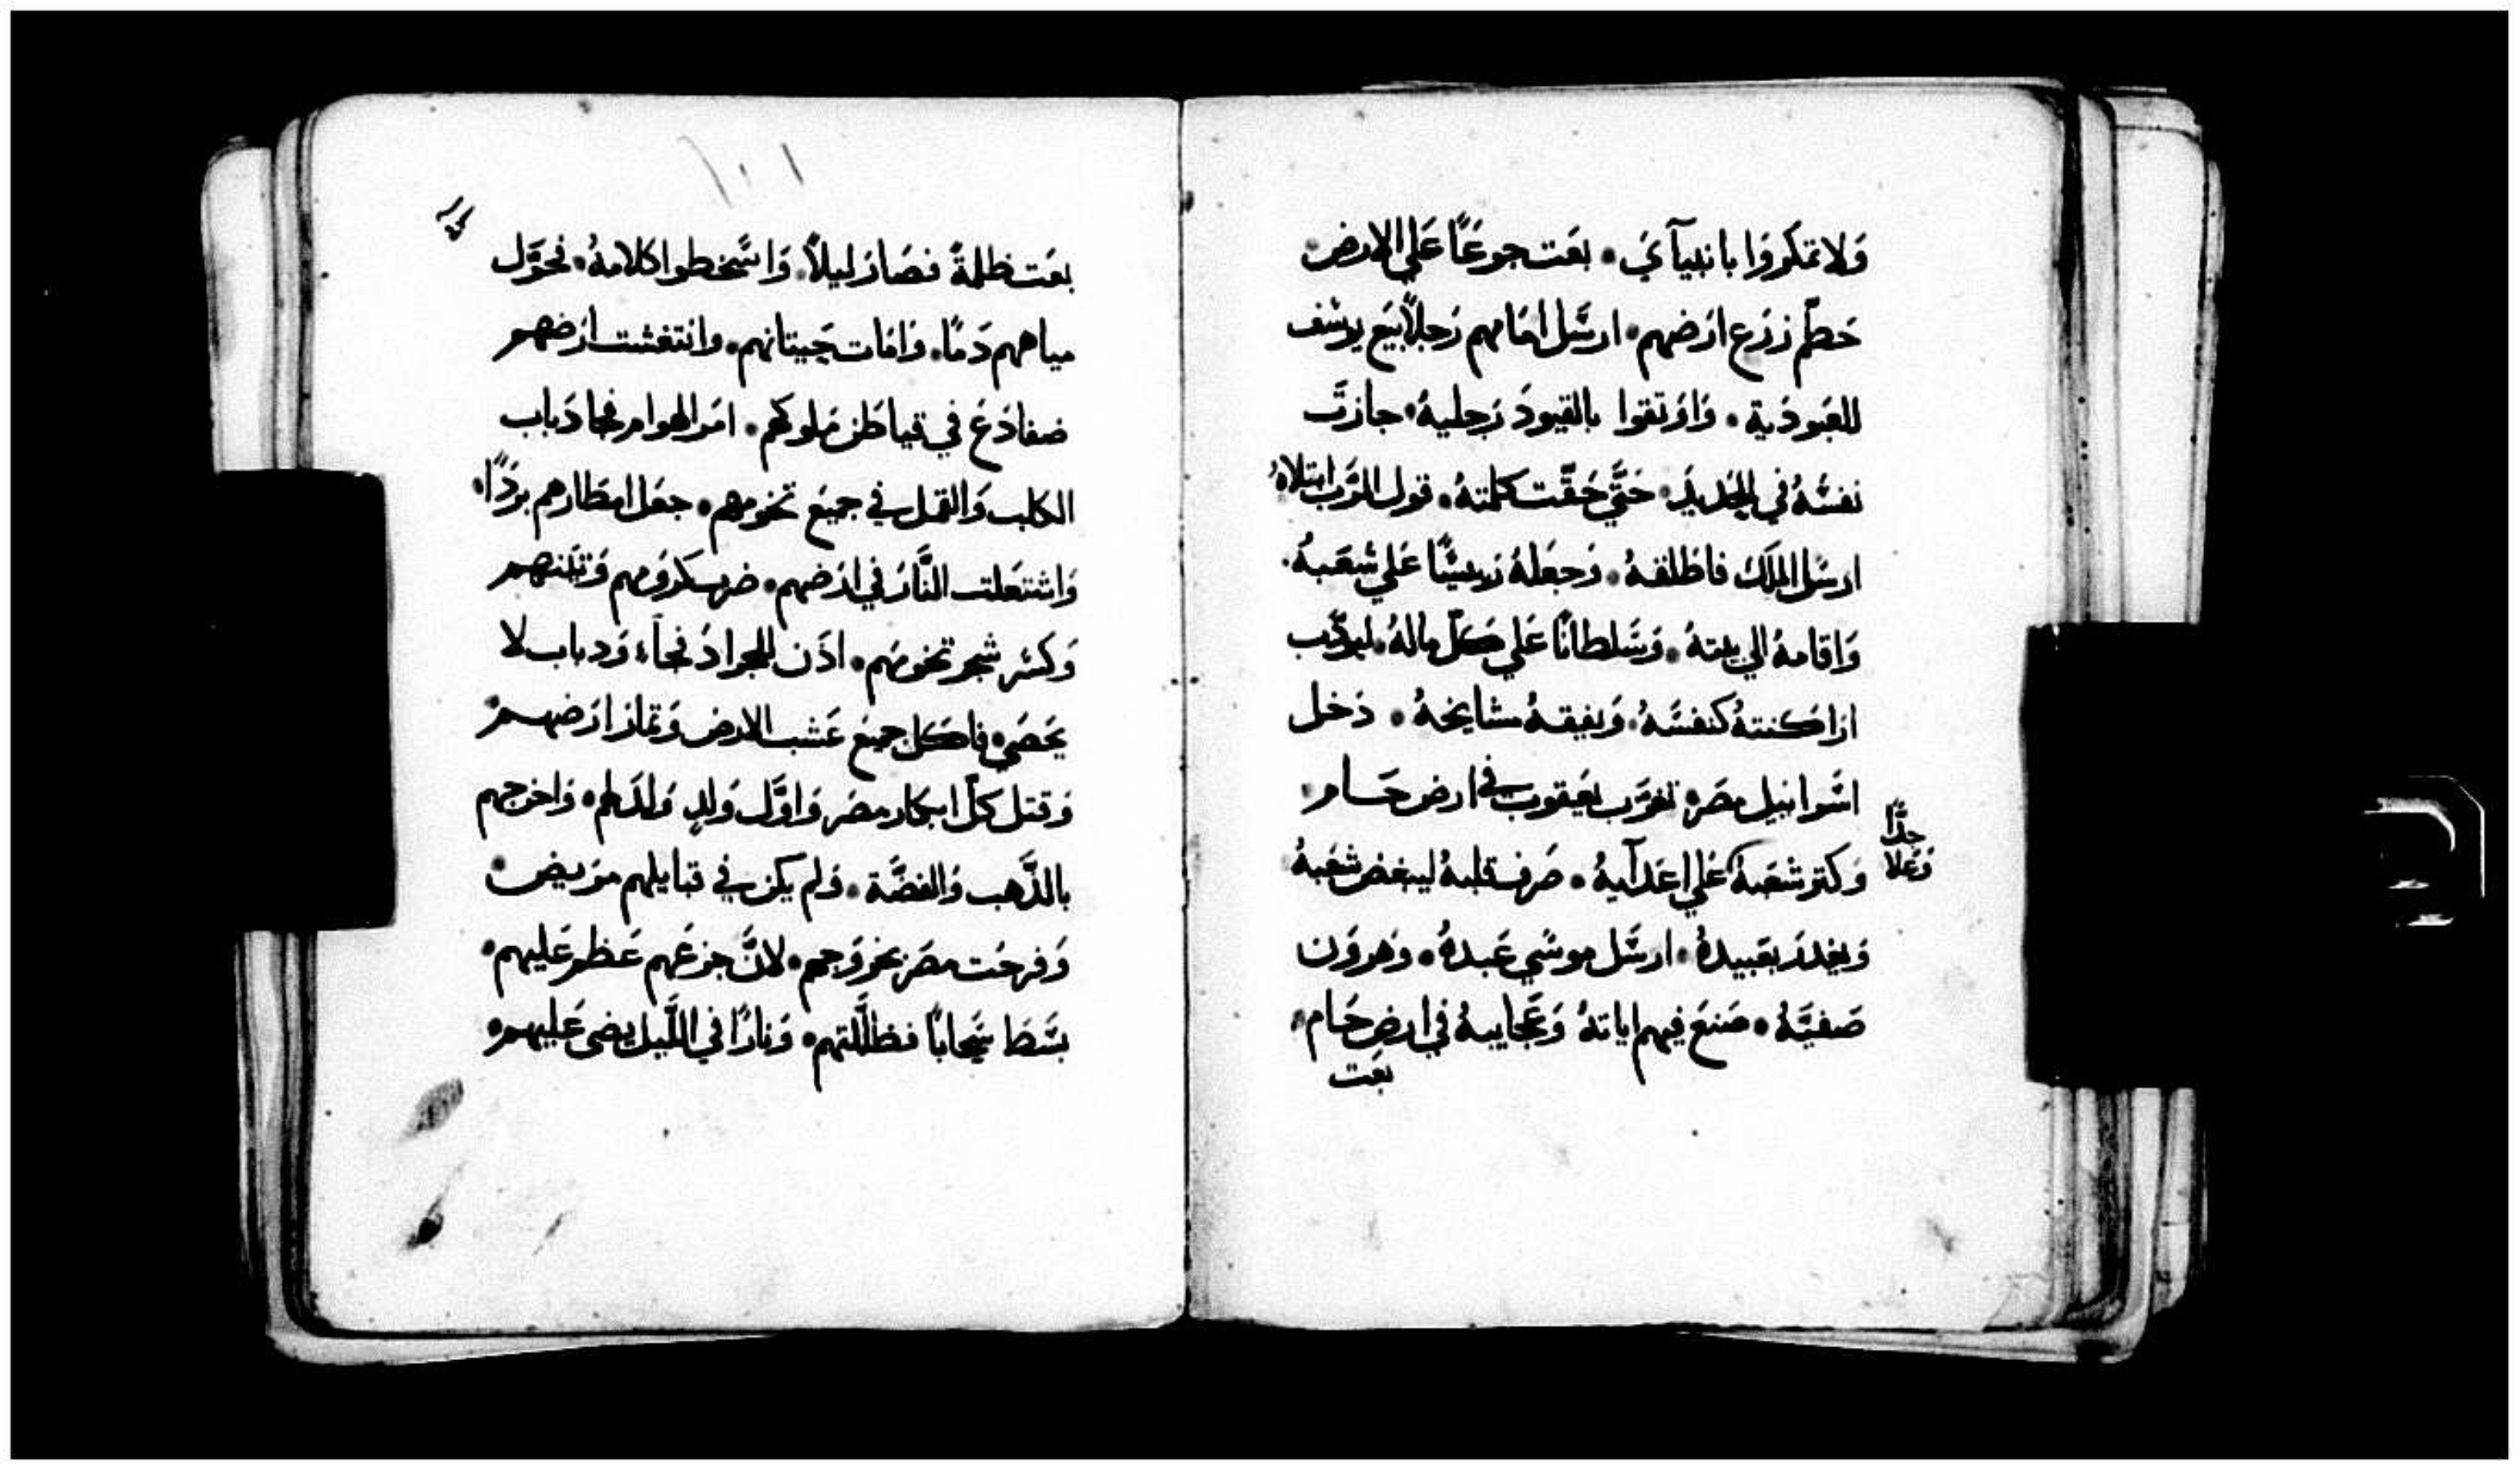 وَلا تمكروَا بانبيآيَ • بعَت جوعًا عَلي الارض
حَطم زرَع ارَضهم • ارسَل امَامهم رَجلًا بيَع يوسُف
للعَبودَية • وَاوَتقوا بالقيودَ رَجليهُ • جازتَ
نفسُهُ في الحَديدَ • حَتَّي حَقّت كلمتهُ • قول الرَّب ابتلاهُ
ارسَل الملَكَ فاطَلقهُ • وَجعَلهُ رَييسًا عَلي شعَبهُ •
وَاقامهُ الي بيتهُ • وَسَلطانًا عَلي كلّ مالهُ • ليودّب
اراكنتهُ كنفسَهُ • وَيفيقهُ مشايخهُ • دَخل
اسَرائيل مصَر • تغرَب يعَقوب في ارض حَام •
وَكتر شعَبهُ عَلي اعَدآيهُ • صَرف قلبهُ ليبغض شعَبهُ
جدًّا
وَعَلا
وَيغدرَ بعَبيدهُ • ارسَل موسَي عَبدهُ • وَهروَن
صَفيَّهُ • صَنعَ فيهم اياتهُ وَعَجايبهُ في ارض حَام •
بعَت
١٠١
بعَت ظلمةً فصَارَ ليلًا • وَاسَخطوا كلامهُ • فحوَّل
مياههم دَمًا • وَامَات حَيتانهم • وانتفشت ارَضهم
ضفادَعَ في قياطَن مَلوكهم • امَر الهوامر فجا دَباب
الكلب وَالقمل في جميَع تخومهم • جعَل امطَارهم برَدًا •
وَاشتعَلت النَّارَ في ارَضهم • ضرب كروَمهم وَتينهم
وَكسَر شجر تخومَهم • اذَن للجرادَ فجاَء وَدباب لا
يحَصَي • فاكل جميَع عَشب الارض وَتمارَ ارَضهم •
وَقتل كلّ ابكار مصَر وَاوَّل وَلدٍ وَلدَ لهم • وَاخرجهم
بالذَّهب وَالفضَّة • وَلم يكن في قبايلهم مرَيض •
وَفرحَت مصَر بخروَجهم • لانَّ جزعَهم عَظم عَليهم •
بسَطَ سَحابًا فظلَّلتهم • وَنارًا في اللَّيل يضي عَليهم •